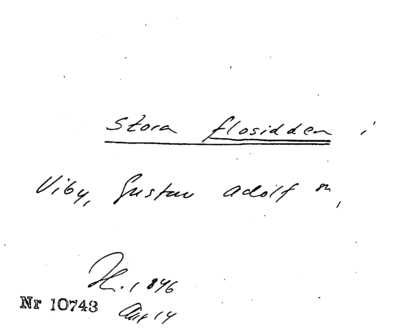 Stora flosidden i
Viby, Gustav Adolf sn,
H. 1846
Nr 10743